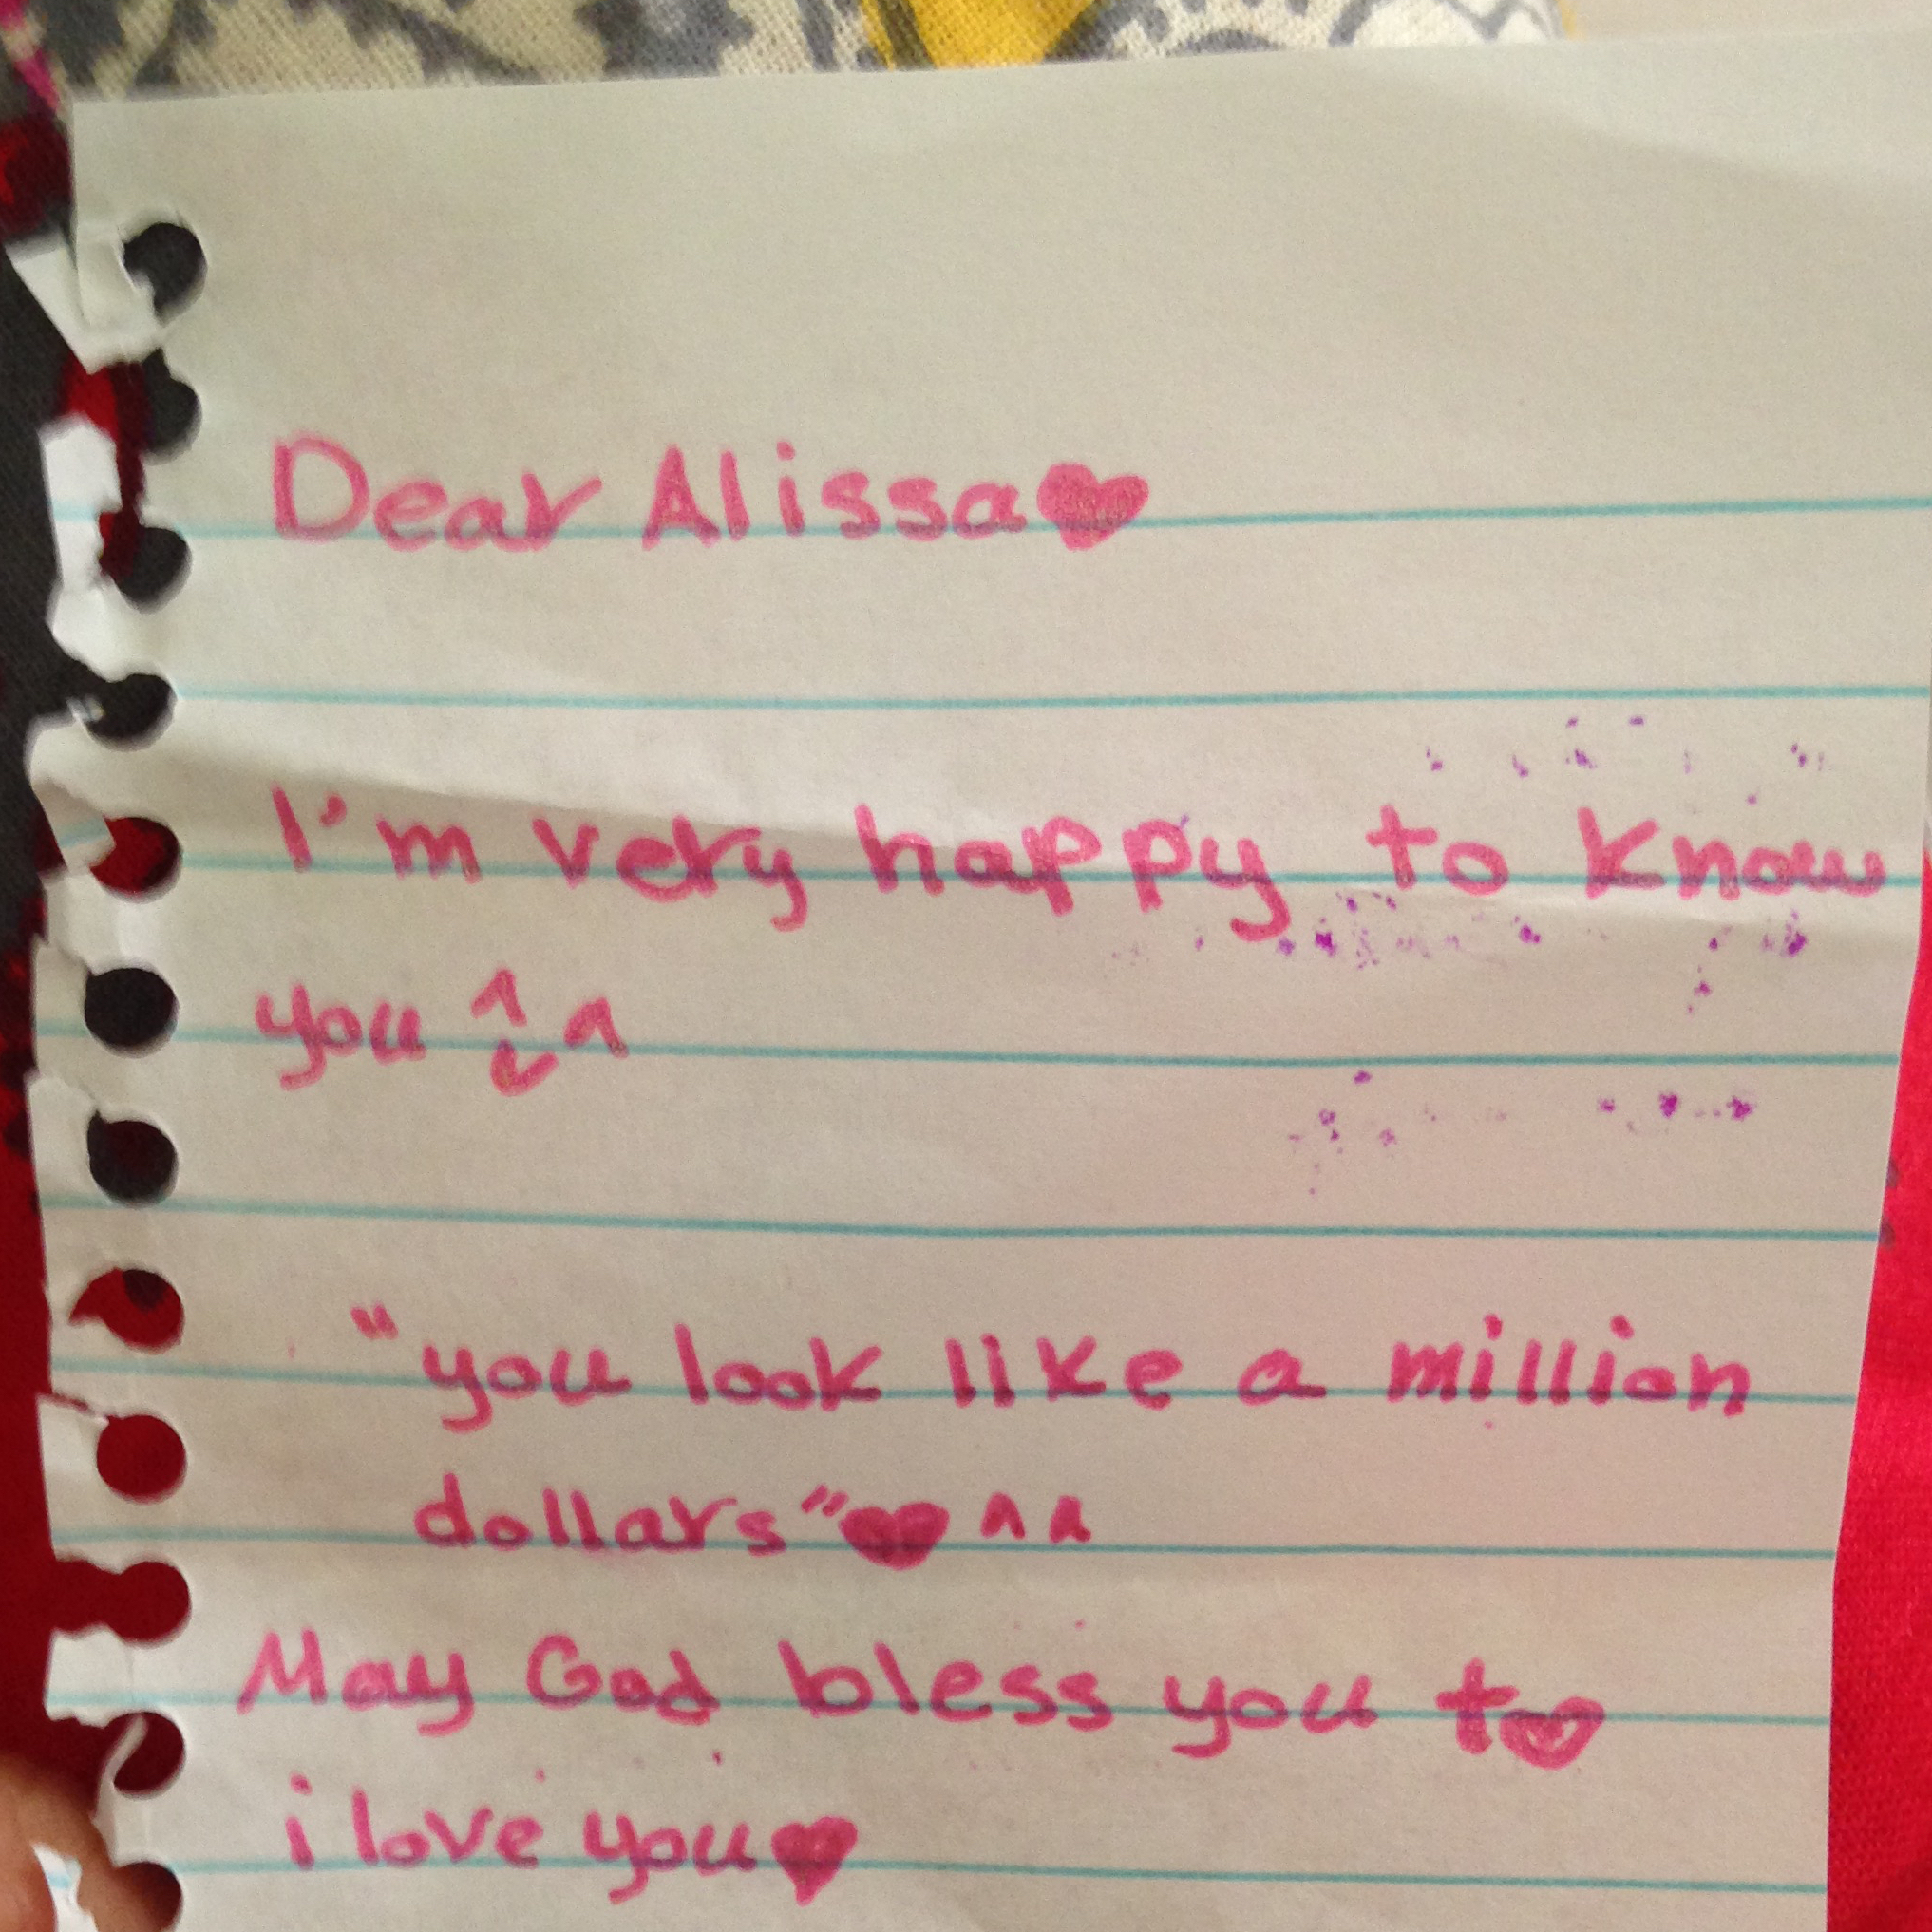 Dear Alissa♥
I'm very happy to know
you ^v^
"you look like a million
dollars"♥ ^^
May God bless you to♥
i love you♥